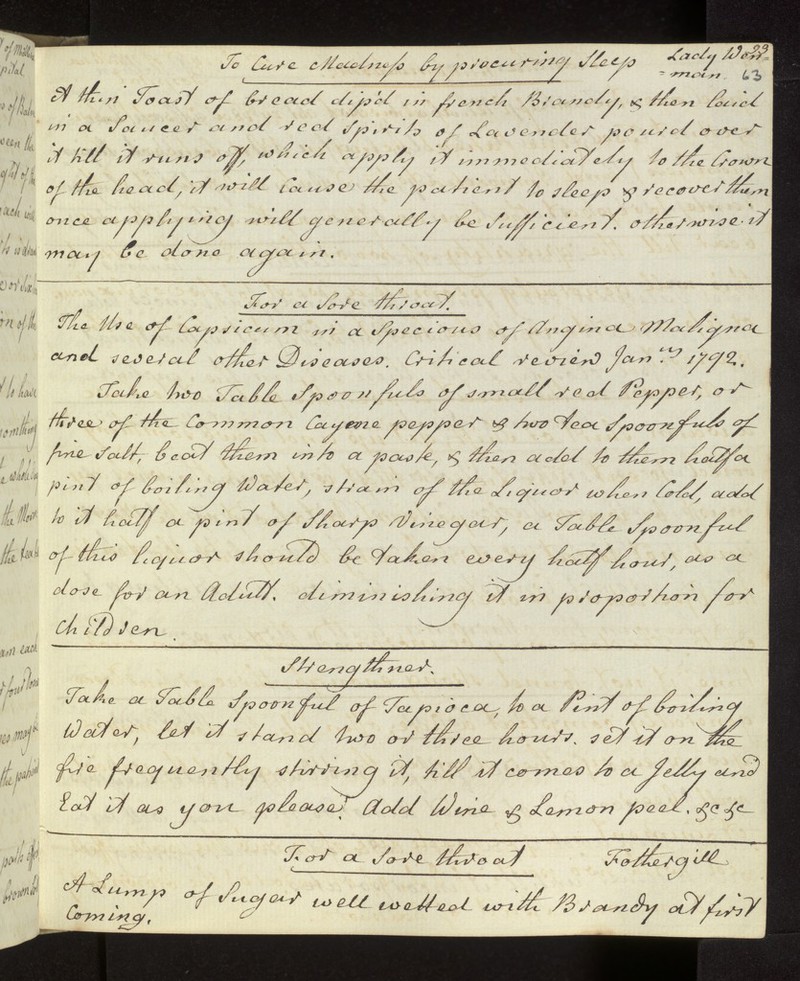 To Cure Madness by procuring Sleep Lady Wen=
=man. 63
A thin Toast of bread dip'd in french Brandy, & then laid
in a Saucer and red Spirits of Lavender pourd over
it till it runs off, which apply it immediately to the Crown
of the head, it will cause the patient to sleep & recover them
once applying will generally be Sufficient. otherwise it
may be done again.
For a Sore throat.
The Use of Capsicum in a Specious of Angina Maligna
and several other Diseases. Critical review Jan.ry 1792.
Take two Table Spoonfuls of small red Pepper, or
three of the Common Cayene pepper & two tea Spoonfuls of
fine Salt, beat them into a paste, & then add to them half a
pint of boiling Water, strain of the Liquor when Cold, add
to it half a pint of Sharp Vinegar, a Table Spoonful
of this liquor should be taken every half hour, as a
dose for an Adult. diminishing it in proportion for
Children.
Strengthner.
Take a Table Spoonful of Tapioca, to a Pint of boiling
Water, let it stand two or three hours. set it on the
fire frequently stirring it, till it comes to a Jelly and
Eat it as you please. Add Wine & Lemon peel. &c &c
For a Sore throat Fothergill
A Lump of Sugar well wetted with Brandy at first
Coming.